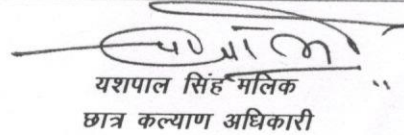 यशपाल सिंह मलिक
छात्र कल्याण अधिकारी